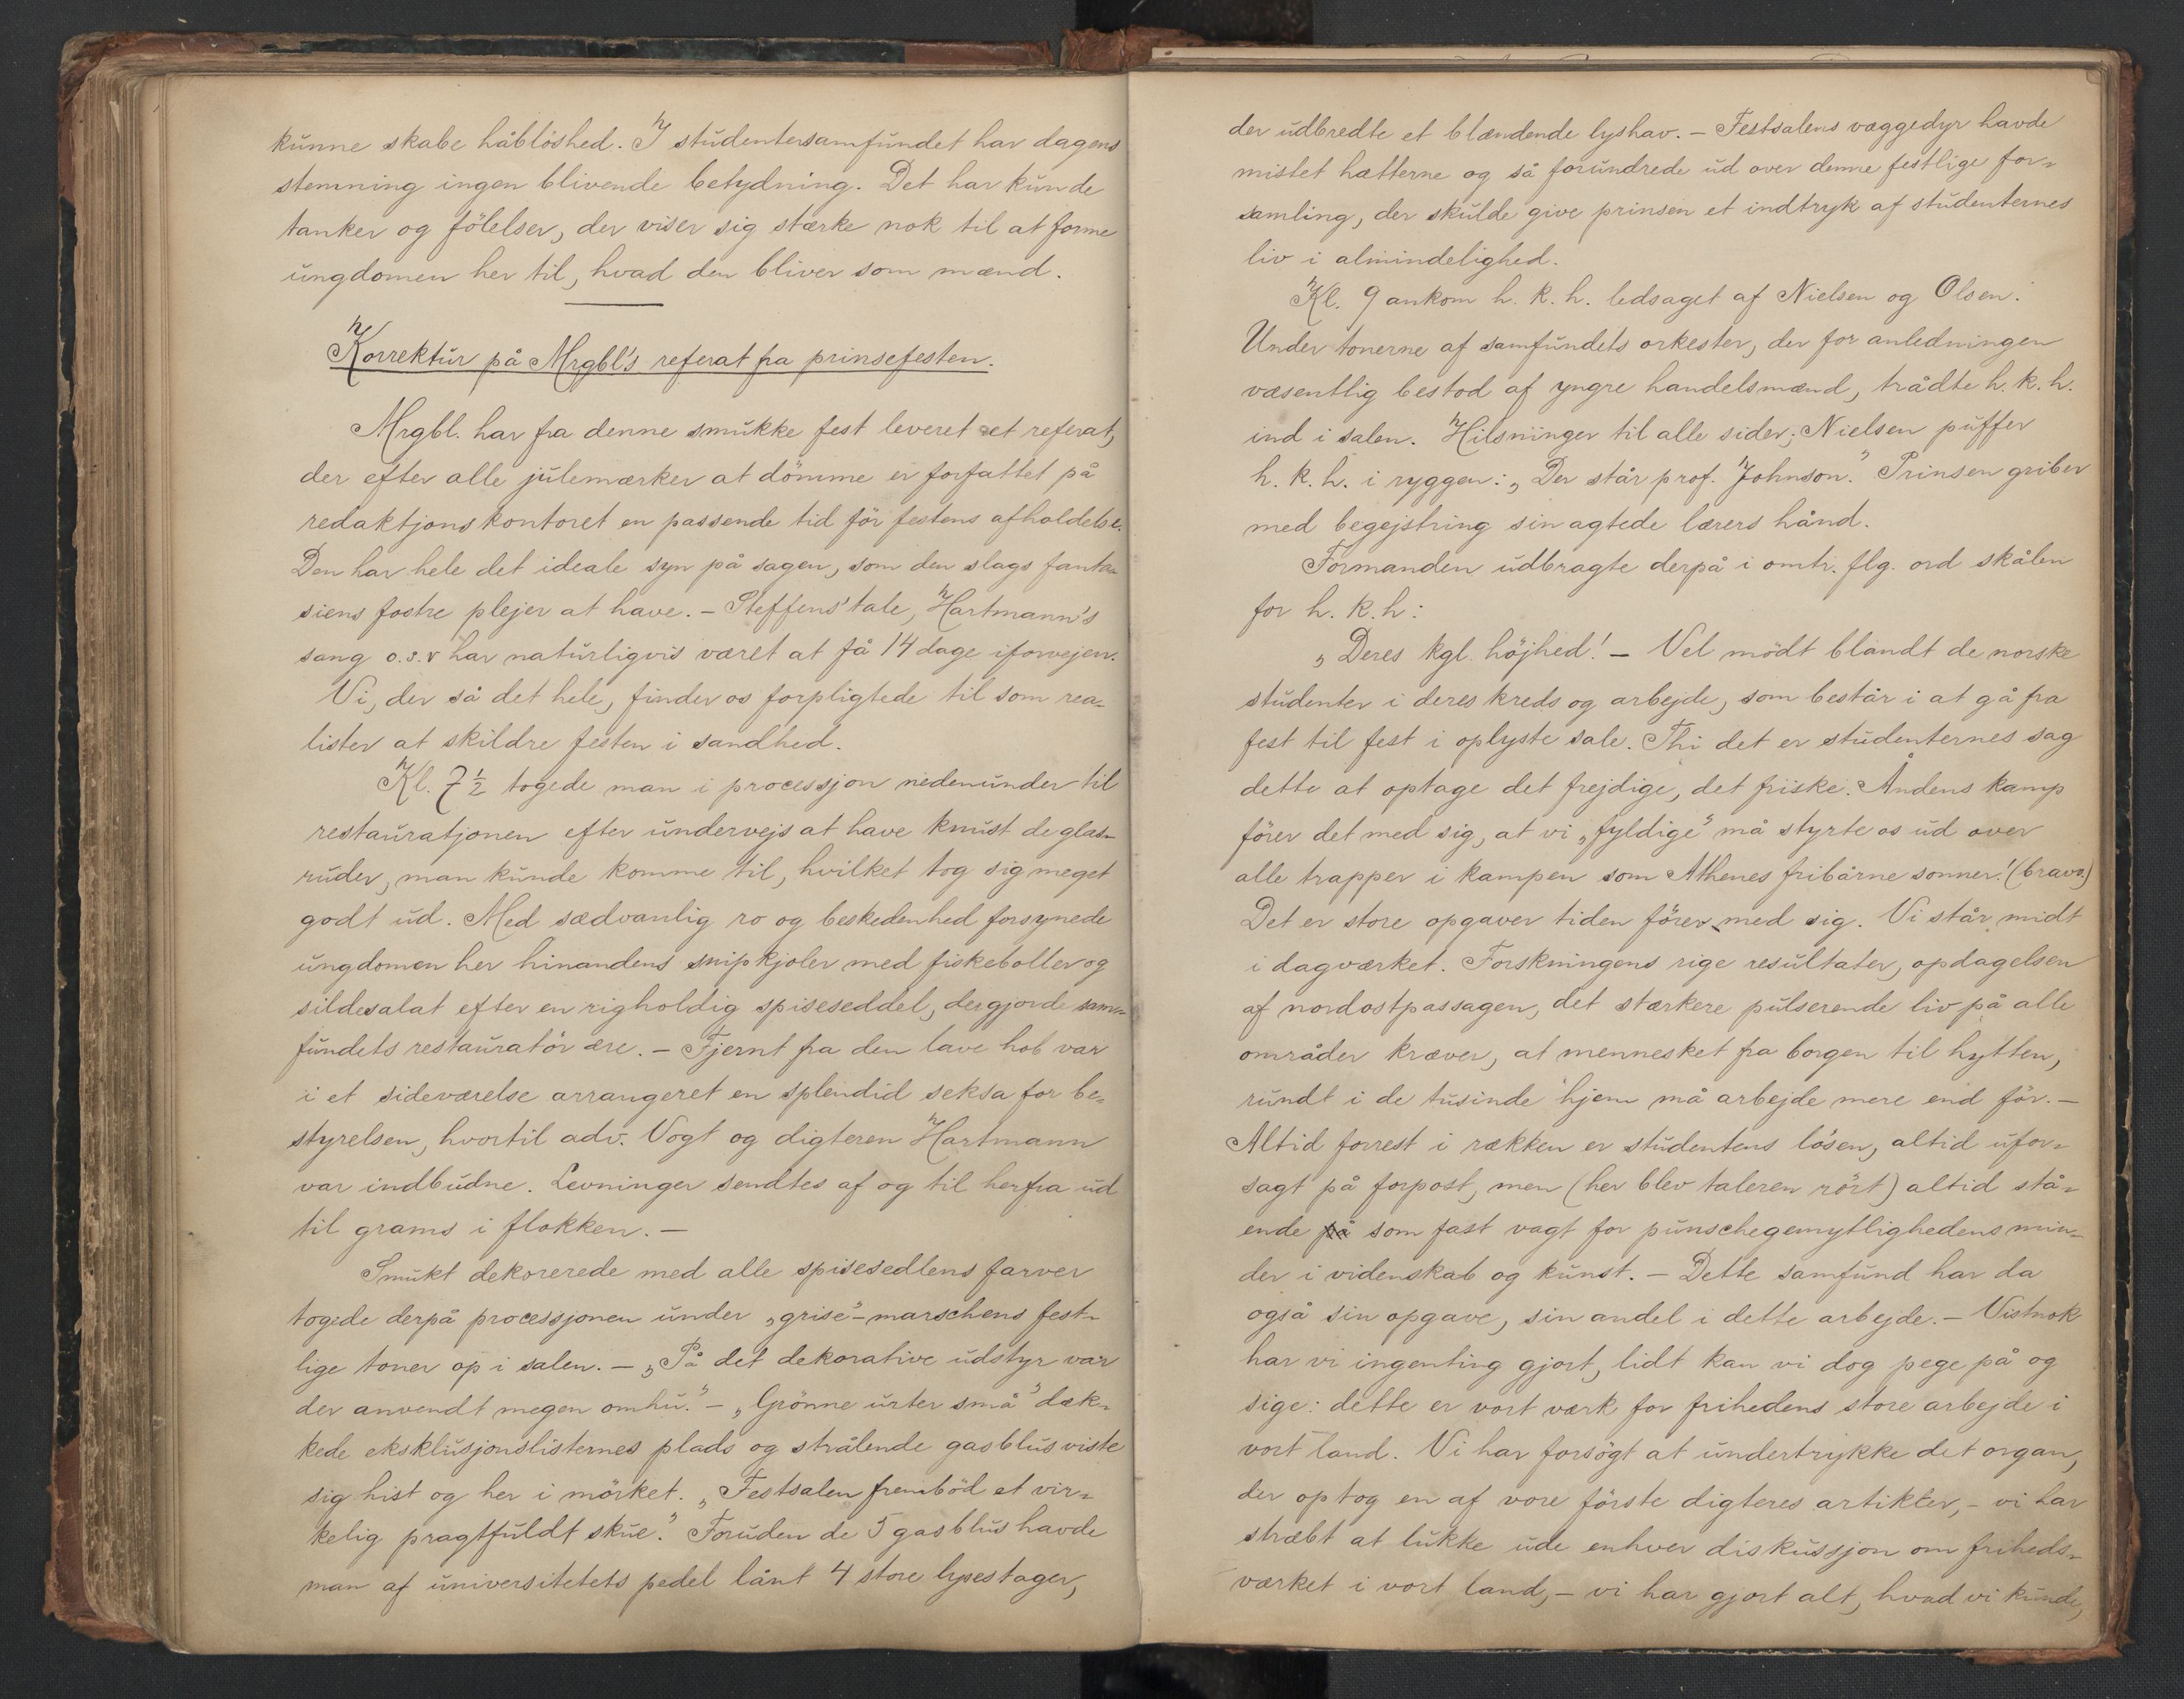 kunne skabe håblöshed. I studentersamfundet har dagens
stemning ingen blivende betydning. Det har kun de
tanker og fölelser, der viser sig stærke nok til at forme
ungdomen her til, hvad den bliver som mænd.
Korrektur på Mrgbl's referat fra prinsefesten.
Mrgbl. har fra denne smukke fest leveret et referat,
der efter alle julemærker at dömme er forfattet på
redaktjonskontoret en passende tid för festens afholdelse.
Den har hele det ideale syn på sagen, som den slags fanta-
siens fostre plejer at have. – Steffens' tale, Hartmann's
sang o.s.v har naturligvis været at få 14 dage iforvejen.
Vi, der så det hele, finder os forpligtede til som rea-
lister at skildre festen i sandhed.
Kl. 7 ½ togede man i processjon nedenunder til
restauratjonen efter undervejs at have knust de glas-
ruder, man kunde komme til, hvilket tog sig meget
godt ud. Med sædvanlig ro og beskedenhed forsynede
ungdomen her hinandens snipkjoler med fiskeboller og
sildesalat efter en righoldig spiseseddel, der gjorde sam-
fundets restauratör ære. – Fjernt fra den lave hob var
i et sideværelse arrangeret en splendid seksa for be-
styrelsen, hvortil adv. Vogt og digteren Hartmann
var indbudne. Levninger sendtes af og til herfra ud
til grams i flokken. –
Smukt dekorerede med alle spisesedlens farver
togede derpå processjonen under „grise”-marschens fest-
lige toner op i salen. – „På det dekorative udstyr var
der anvendt megen omhu.” – „Grönne urter små” dæk-
kede eksklusjonslisternes plads og strålende gasblus viste
sig hist og her i mörket. „Festsalen fremböd et vir-
kelig pragtfuldt skue.” Foruden de 5 gasblus havde
man af universitetets pedel lånt 4 store lysestager,
der udbredte et blændende lyshav. – Festsalens væggedyr havde
mistet hætterne og så forundrede ud over denne festlige for-
samling, der skulde give prinsen et indtryk af studenternes
liv i almindelighed.
Kl. 9 ankom h. k. h. ledsaget af Nielsen og Olsen.
Under tonerne af samfundets orkester, der for anledningen
væsentlig bestod af yngre handelsmænd, trådte h. k. h.
ind i salen. Hilsninger til alle sider; Nielsen puffer
h. k. h. i ryggen: „Der står prof. Johnson.” Prinsen griber
med begejstring sin agtede lærers hånd.
Formanden udbragte derpå i omtr. flg. ord skålen
for h. k. h:
„Deres kgl. höjhed! – Vel mödt blandt de norske
studenter i deres kreds og arbejde, som består i at gå fra
fest til fest i oplyste sale. Thi det er studenternes sag
dette at optage det frejdige, det friske. Åndens kamp
förer det med sig, at vi „fyldige” må styrte os ud over
alle trapper i kampen som Athenes fribårne sonner! (bravo.)
Det er store opgaver tiden förer med sig. Vi står midt
i dagværket. Forskningens rige resultater, opdagelsen
af nordostpassagen, det stærkere pulserende liv på alle
områder kræver, at mennesket fra borgen til hytten,
rundt i de tusinde hjem må arbejde mere end för. –
Altid forrest i rækken er studentens lösen, altid ufor-
sagt på forpost, men (her blev taleren rört) altid stå-
ende som fast vagt for punschegemytlighedens min-
der i videnskab og kunst. – Dette samfund har da
også sin opgave, sin andel i dette arbejde. – Vistnok
har vi ingenting gjort, lidt kan vi dog pege på og
sige: dette er vort værk for frihedens store arbejde i
vort land. Vi har forsögt at undertrykke det organ,
der optog en af vore förste digteres artikler, – vi har
stræbt at lukke ude enhver diskussjon om friheds-
værket i vort land, – vi har gjort alt, hvad vi kunde,